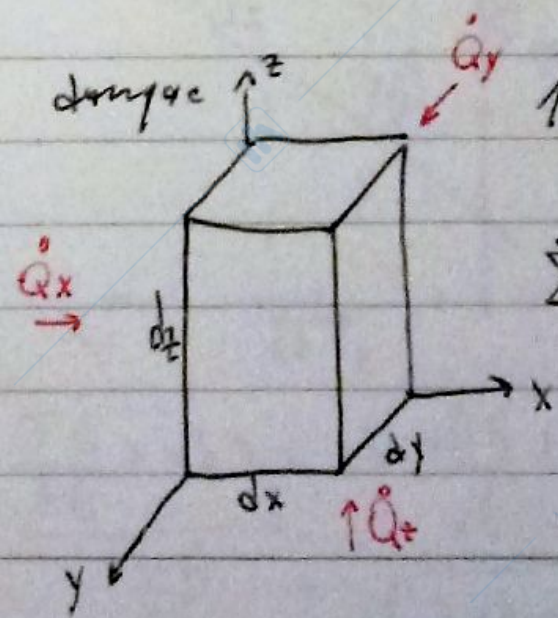 z
Q̇y
Q̇x
dz
x
dy
dx
Q̇z
y